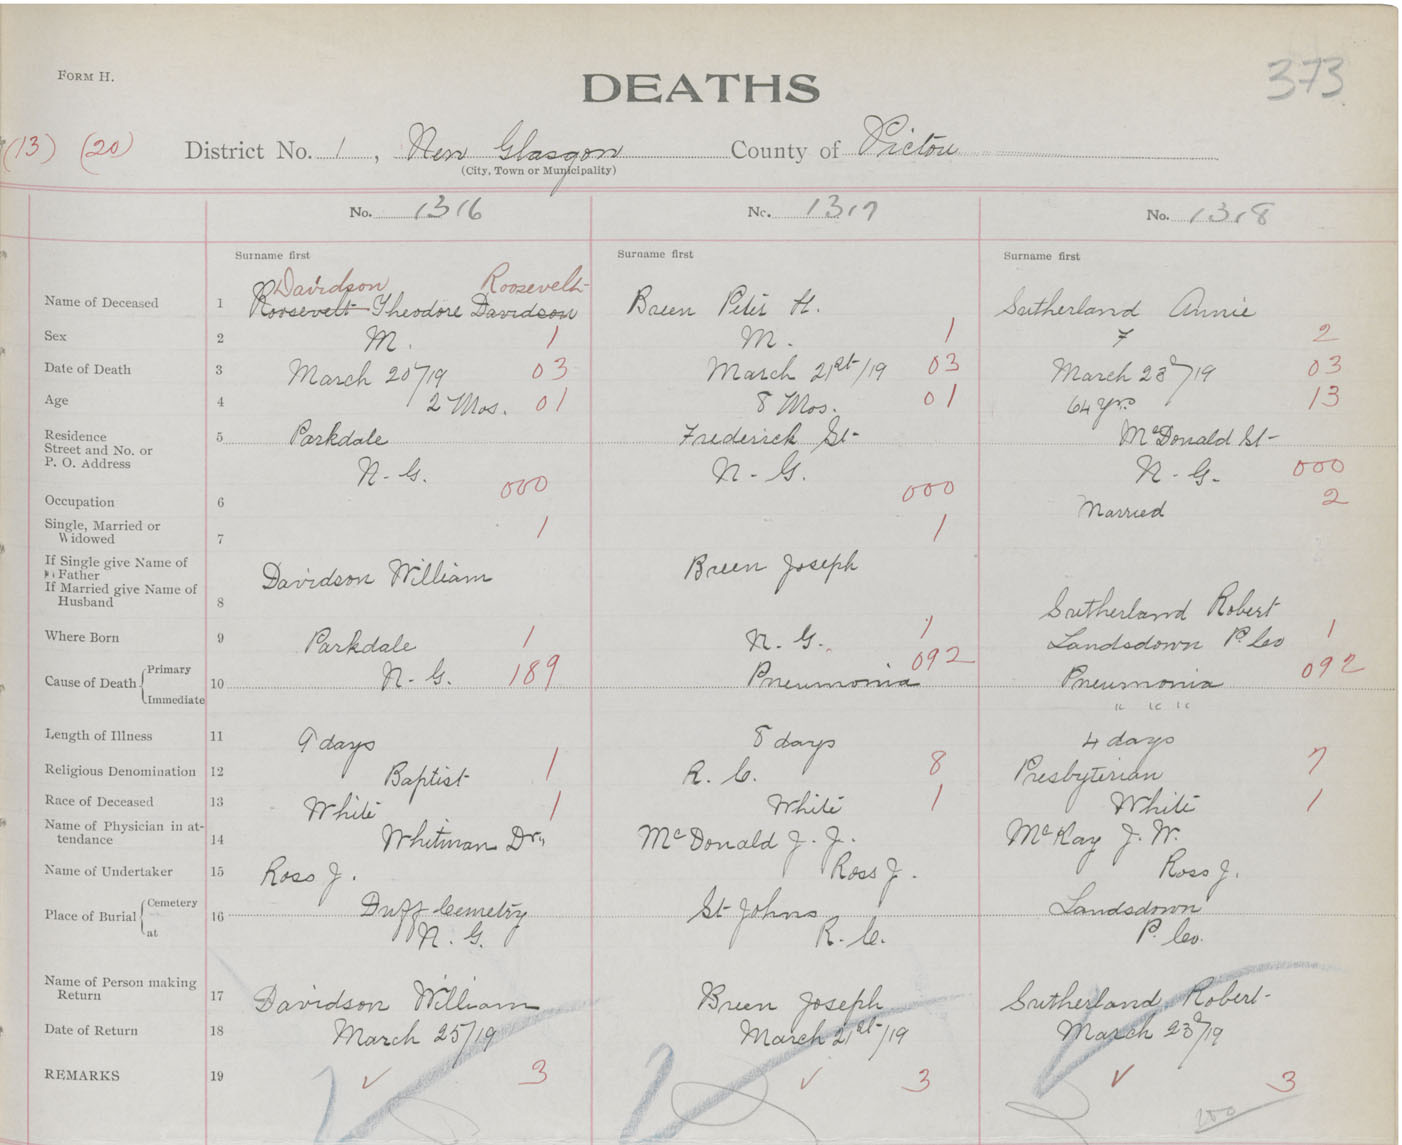 FORM H.
DEATHS
373
(13) (20) District No. 1, New Glasgow County of Pictou
(City, Town or Municipality)
No. 1316 No. 1317 No. 1318
Surname first Surname first Surname first
Davidson Roosevelt
Name of Deceased 1 Roosevelt Theodore Davidson Breen Peter H. Sutherland Annie
Sex 2 M. 1 M. 1 F 2
Date of Death 3 March 20/19 03 March 21st/19 03 March 23d/19 03
Age 4 2 Mos. 01 8 Mos. 01 64 yrs 13
Residence 5 Parkdale Frederick St McDonald St
Street and No. or
P. O. Address N-G. 000 N-G. 000 N-G. 000
Occupation 6 Married 2
Single, Married or 1 1
Widowed 7
If Single give Name of
Father Davidson William Breen Joseph
If Married give Name of
Husband 8 Sutherland Robert
Where Born 9 Parkdale 1 N.G. 1 Landsdown P. Co 1
Primary
Cause of Death 10 N-G. 189 Pneumonia 092 Pneumonia 092
Immediate " " "
Length of Illness 11 9 days 8 days 4 days
Religious Denomination 12 Baptist 1 R.C. 8 Presbyterian 7
Race of Deceased 13 White 1 White 1 White 1
Name of Physician in at-
tendance 14 Whitman Dr. McDonald J. J. McKay J. W.
Name of Undertaker 15 Ross J. Ross J. Ross J.
Cemetery
Place of Burial 16 Duff Cemetry St Johns Landsdown
at N.G. R.C. P. Co.
Name of Person making
Return 17 Davidson William Breen Joseph Sutherland Robert
Date of Return 18 March 25/19 March 21st/19 March 23d/19
REMARKS 19 ✓ 3 ✓ 3 ✓ 3
200